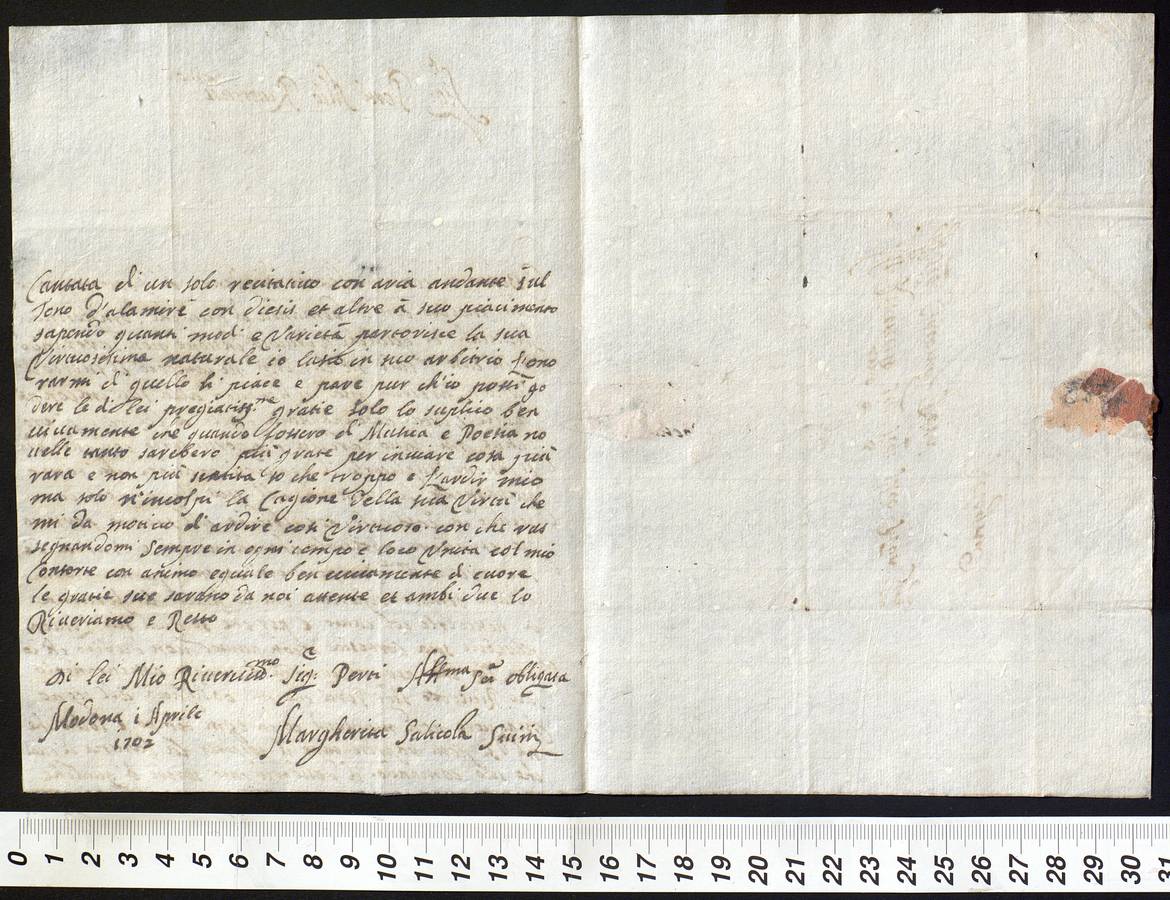 Cantata di un solo recitativo con aria andante sul
Tono d'alamirè con diesis et altre à suo piacimento
sapendo quanti modi e Varietà partorisce la sua
Virtuosissima naturale io lascio in suo arbitrio l'ono
rarmi di quello li piace e pare pur ch'io possi go
dere le di lei pregiatiss.me gratie solo lo suplico ben
vivamente che quando fossero di Musica e Poesia no
velle tanto sarebero più grate per inviare cosa più
rara e non più sentita so che troppo e l'ardir mio
ma solo n'incolpi la Cagione della sua Virtù che
mi da motivo di ardire così Virtuoso con che ras
segnandomi sempre in ogni tempo e loco Unita col mio
Consorte con animo equale ben vivamente di cuore
le gratie sue sarano da noi attente et ambi due lo
Riveriamo e Resto
di lei Mio Riveritis.mo Sig.e Perti Aff.ma Ser obligata
Modona i Aprile
1702
Margherita Salicola Suini
0 1 2 3 4 5 6 7 8 9 10 11 12 13 14 15 16 17 18 19 20 21 22 23 24 25 26 27 28 29 30 31